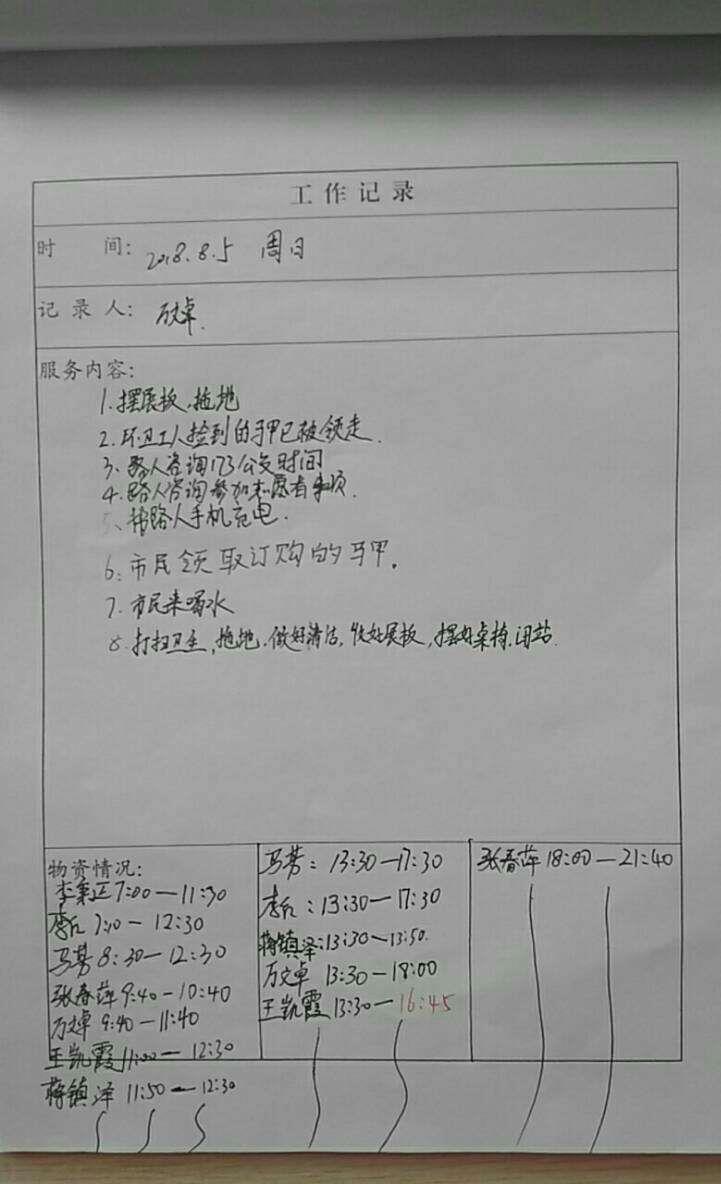 工作记录
时 间: 2018.8.5 周日
记录人: 万文卓
服务内容:
1.摆展板、拖地
2.环卫工人捡到的马甲已被领走.
3、路人咨询173公交时间
4.路人咨询参加志愿者事项.
5、帮路人手机充电.
6.市民领取订购的马甲.
7.市民来喝水
8.打扫卫生,拖地.做好清洁,收好展板,摆好桌椅.闭站.
物资情况:
7:00—11:30
7:10—12:30
马芳 8:30—12:30
张春萍 9:40-10:40
万文卓 9:40—11:40
王凯霞 11:00—12:30
蒋镇泽 11:50—12:30
马芳: 13:30—17:30
:13:30—17:30
蒋镇泽:13:30—13:50.
万文卓 13:30—18:00
王凯霞 13:30—16:45
张春萍 18:00—21:40